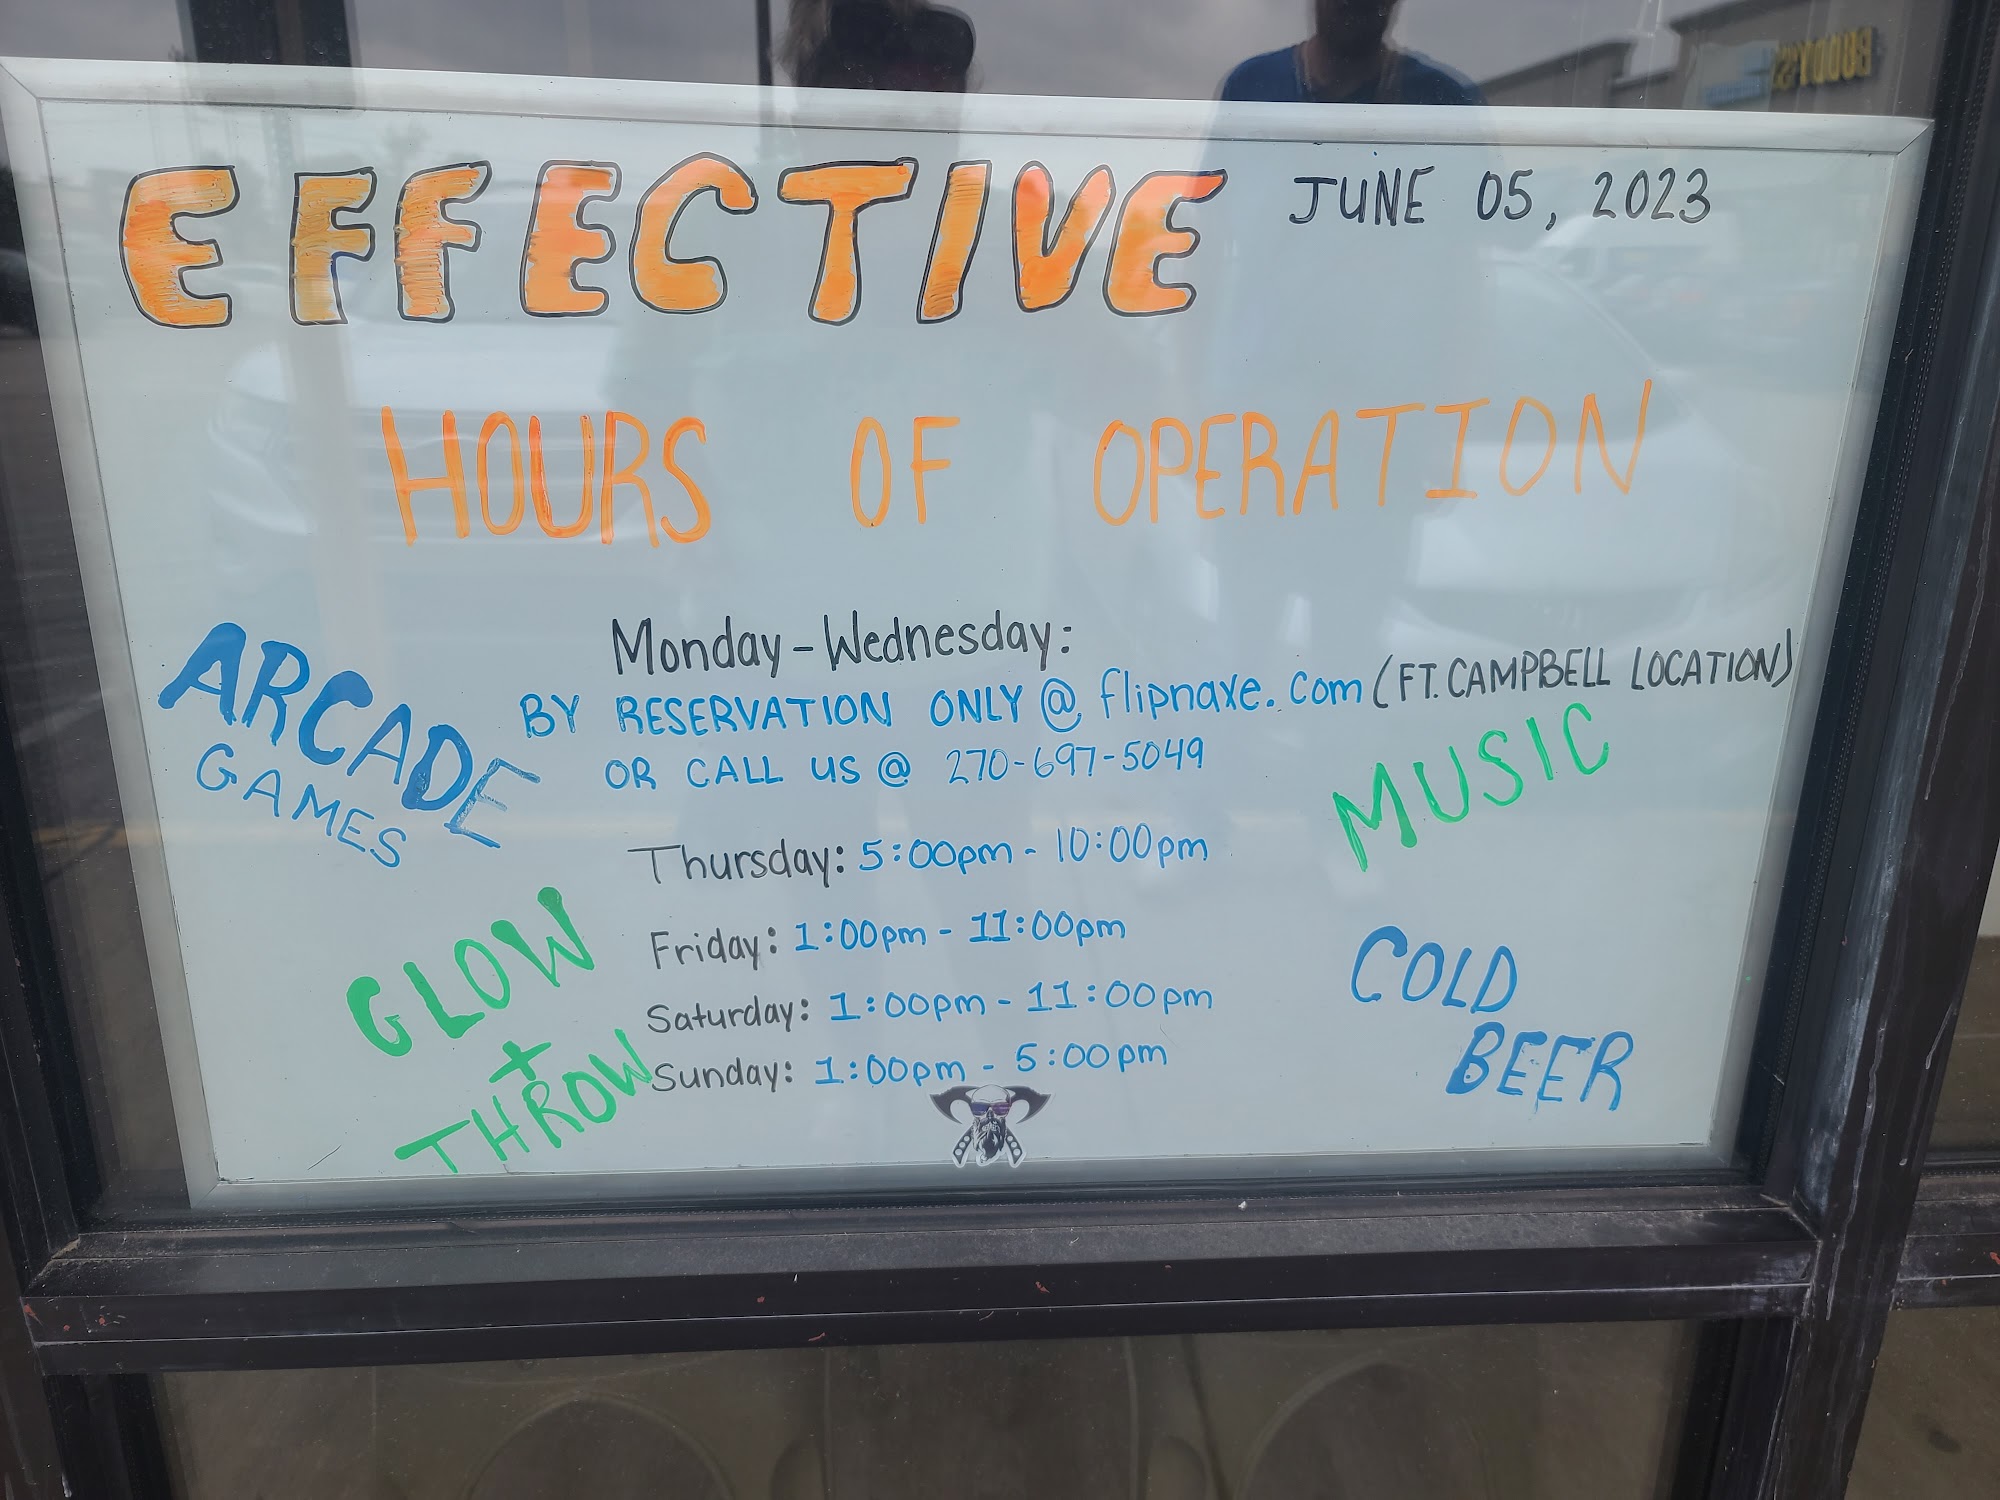 EFFECTIVE JUNE 05, 2023
HOURS OF OPERATION
ARCADE
GAMES
Monday-Wednesday:
BY RESERVATION ONLY @ flipnaxe.com (FT. CAMPBELL LOCATION)
OR CALL US @ 270-697-5049
MUSIC
Thursday: 5:00pm - 10:00pm
Friday: 1:00pm - 11:00pm
Saturday: 1:00pm - 11:00pm
Sunday: 1:00pm - 5:00pm
GLOW
+
THROW
COLD
BEER
BUDDY'S